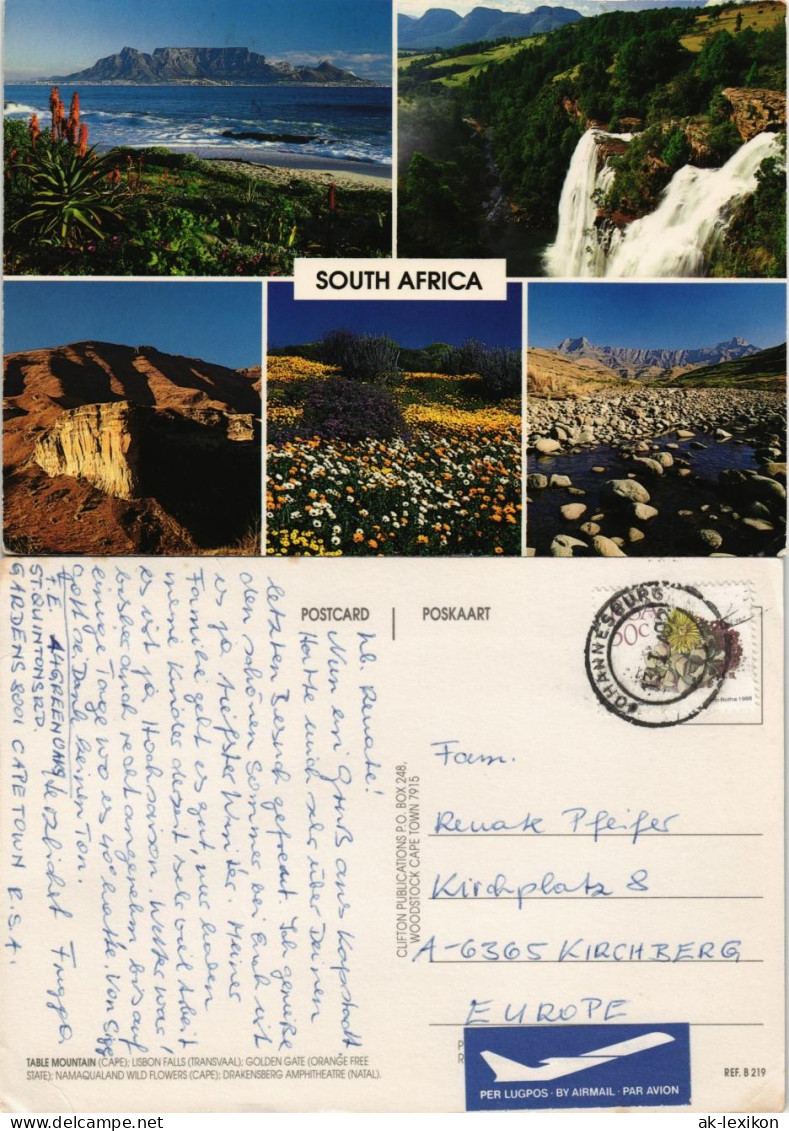 SOUTH AFRICA
POSTCARD
POSKAART
JOHANNESBURG
50c
1988
lb. Renate!
Nun ein Gruß aus Kapstadt
Hatte mich sehr über Deinen
letzten Besuch gefreut. Ich genieße
den schönen Sommer bei Euch ist
es ja tiefster Winter. Meiner
Familie geht es gut, nur haben
meine Kinder derzeit sehr viel Arbeit
es ist ja Hochsaison. Wetter war
bisher auch recht angenehm bis auf
einige Tage wo es 40° hatte. Von
Gott sei Dank keinen Ton.
herzlichst
T.E. A4 GREEN OAKS
ST. QUINTONS RD.
GARDENS 8001 CAPE TOWN R.S.A.
CLIFTON PUBLICATIONS P.O. BOX 248,
WOODSTOCK CAPE TOWN 7915
Fam.
Renate Pfeifer
Kirchplatz 8
A-6365 KIRCHBERG
EUROPE
TABLE MOUNTAIN (CAPE); LISBON FALLS (TRANSVAAL); GOLDEN GATE (ORANGE FREE
STATE); NAMAQUALAND WILD FLOWERS (CAPE); DRAKENSBERG AMPHITHEATRE (NATAL).
PER LUGPOS · BY AIRMAIL · PAR AVION
REF. B 219
ak-lexikon